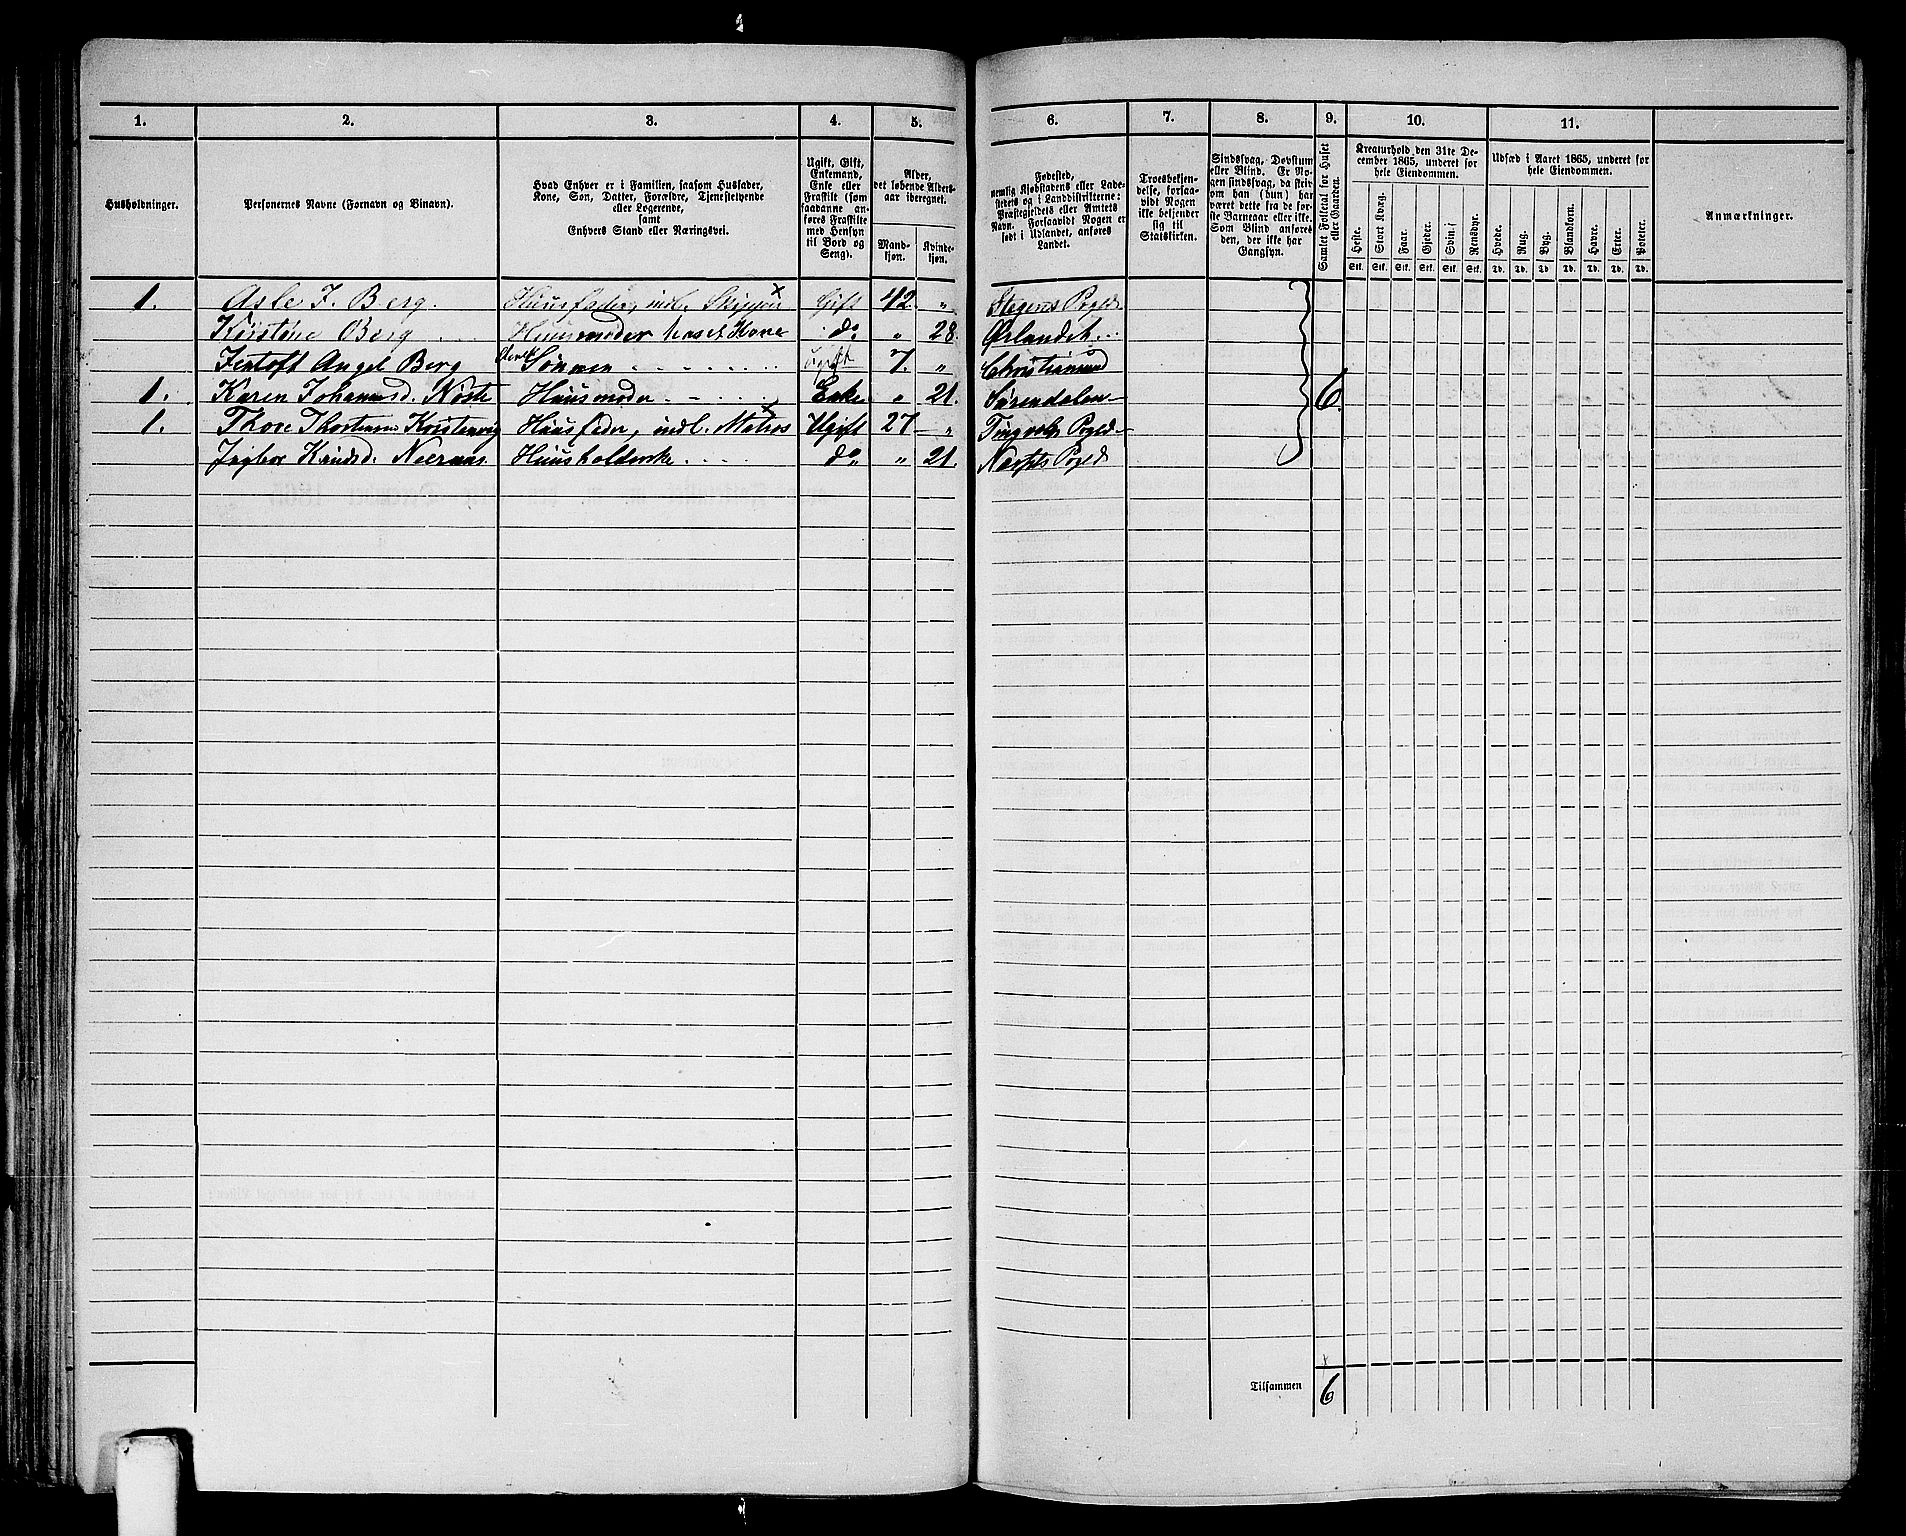 1. 2. 3. 4. 5. 6. 7. 8. 9. 10. 11.
Husholdninger.
Personernes Navne (Fornavn og Binavn).
Hvad Enhver er i Familien, saasom Husfader,
Kone, Søn, Datter, Forældre, Tjenestetyende
eller Logerende,
samt
Enhvers Stand eller Næringsvei.
Ugift, Gift,
Enkemand,
Enke eller
Fraskilt (som
saadanne an-
føres Fraskilte
med Hensyn
til Bord og
Seng).
Alder,
det løbende Alders-
aar iberegnet.
Mand-
kjøn.
Kvinde-
kjøn.
Fødested,
nemlig Kjøbstadens eller Lade-
stedets og i Landdistrikterne:
Præstegjeldets eller Amtets
Navn. Forsaavidt Nogen er
født i Udlandet, anføres
Landet.
Troesbekjen-
delse, forsaa-
vidt Nogen
ikke bekjender
sig til
Statskirken.
Sindssvag, Døvstum
eller Blind. Er No-
gen sindssvag, da skriv
om han (hun) har
været dette fra de før-
ste Barneaar eller ikke.
Som Blind anføres
den, der ikke har
Gangsyn.
Samlet Folketal for Huset
eller Gaarden.
Kreaturhold den 31te De-
cember 1865, underet for
hele Eiendommen.
Heste. Stort Kvæg. Faar. Gjeder. Svin. Rensdyr.
Stk. Stk. Stk. Stk. Stk. Stk.
Udsæd i Aaret 1865, underet for
hele Eiendommen.
Hvede. Rug. Byg. Blandkorn. Havre. Erter. Poteter.
Td. Td. Td. Td. Td. Td. Td.
Anmærkninger.
1. Asle J. Berg. Huusfader, indl. Skipper Gift 42. " Stegens Pgeld
Kirstine Berg Huusmoder hans Kone do " 28. Ørlandet
Jentoft Angel Berg deres Sønnen Ugift 7. " Christiansund
1. Karen Johannsd. Nøste Huusmoder Enke " 21. Surendalen 6.
1. Thore Thorstensen Huusfader, indl. Matros Ugift 27 " Tingvolds Pgeld
Ingbor Knudsd. Huusholderske do " 21. Næssets Pgeld
Tilsammen 6